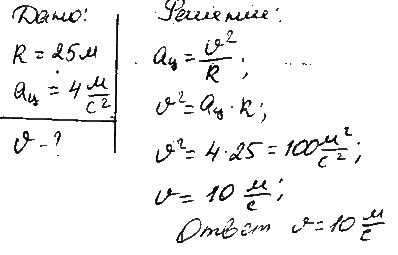 Дано:
R = 25 м
aц = 4 м/с²
v - ?
Решение:
aц = v²/R;
v² = aц · R;
v² = 4 · 25 = 100 м²/с²;
v = 10 м/с;
Ответ v = 10 м/с